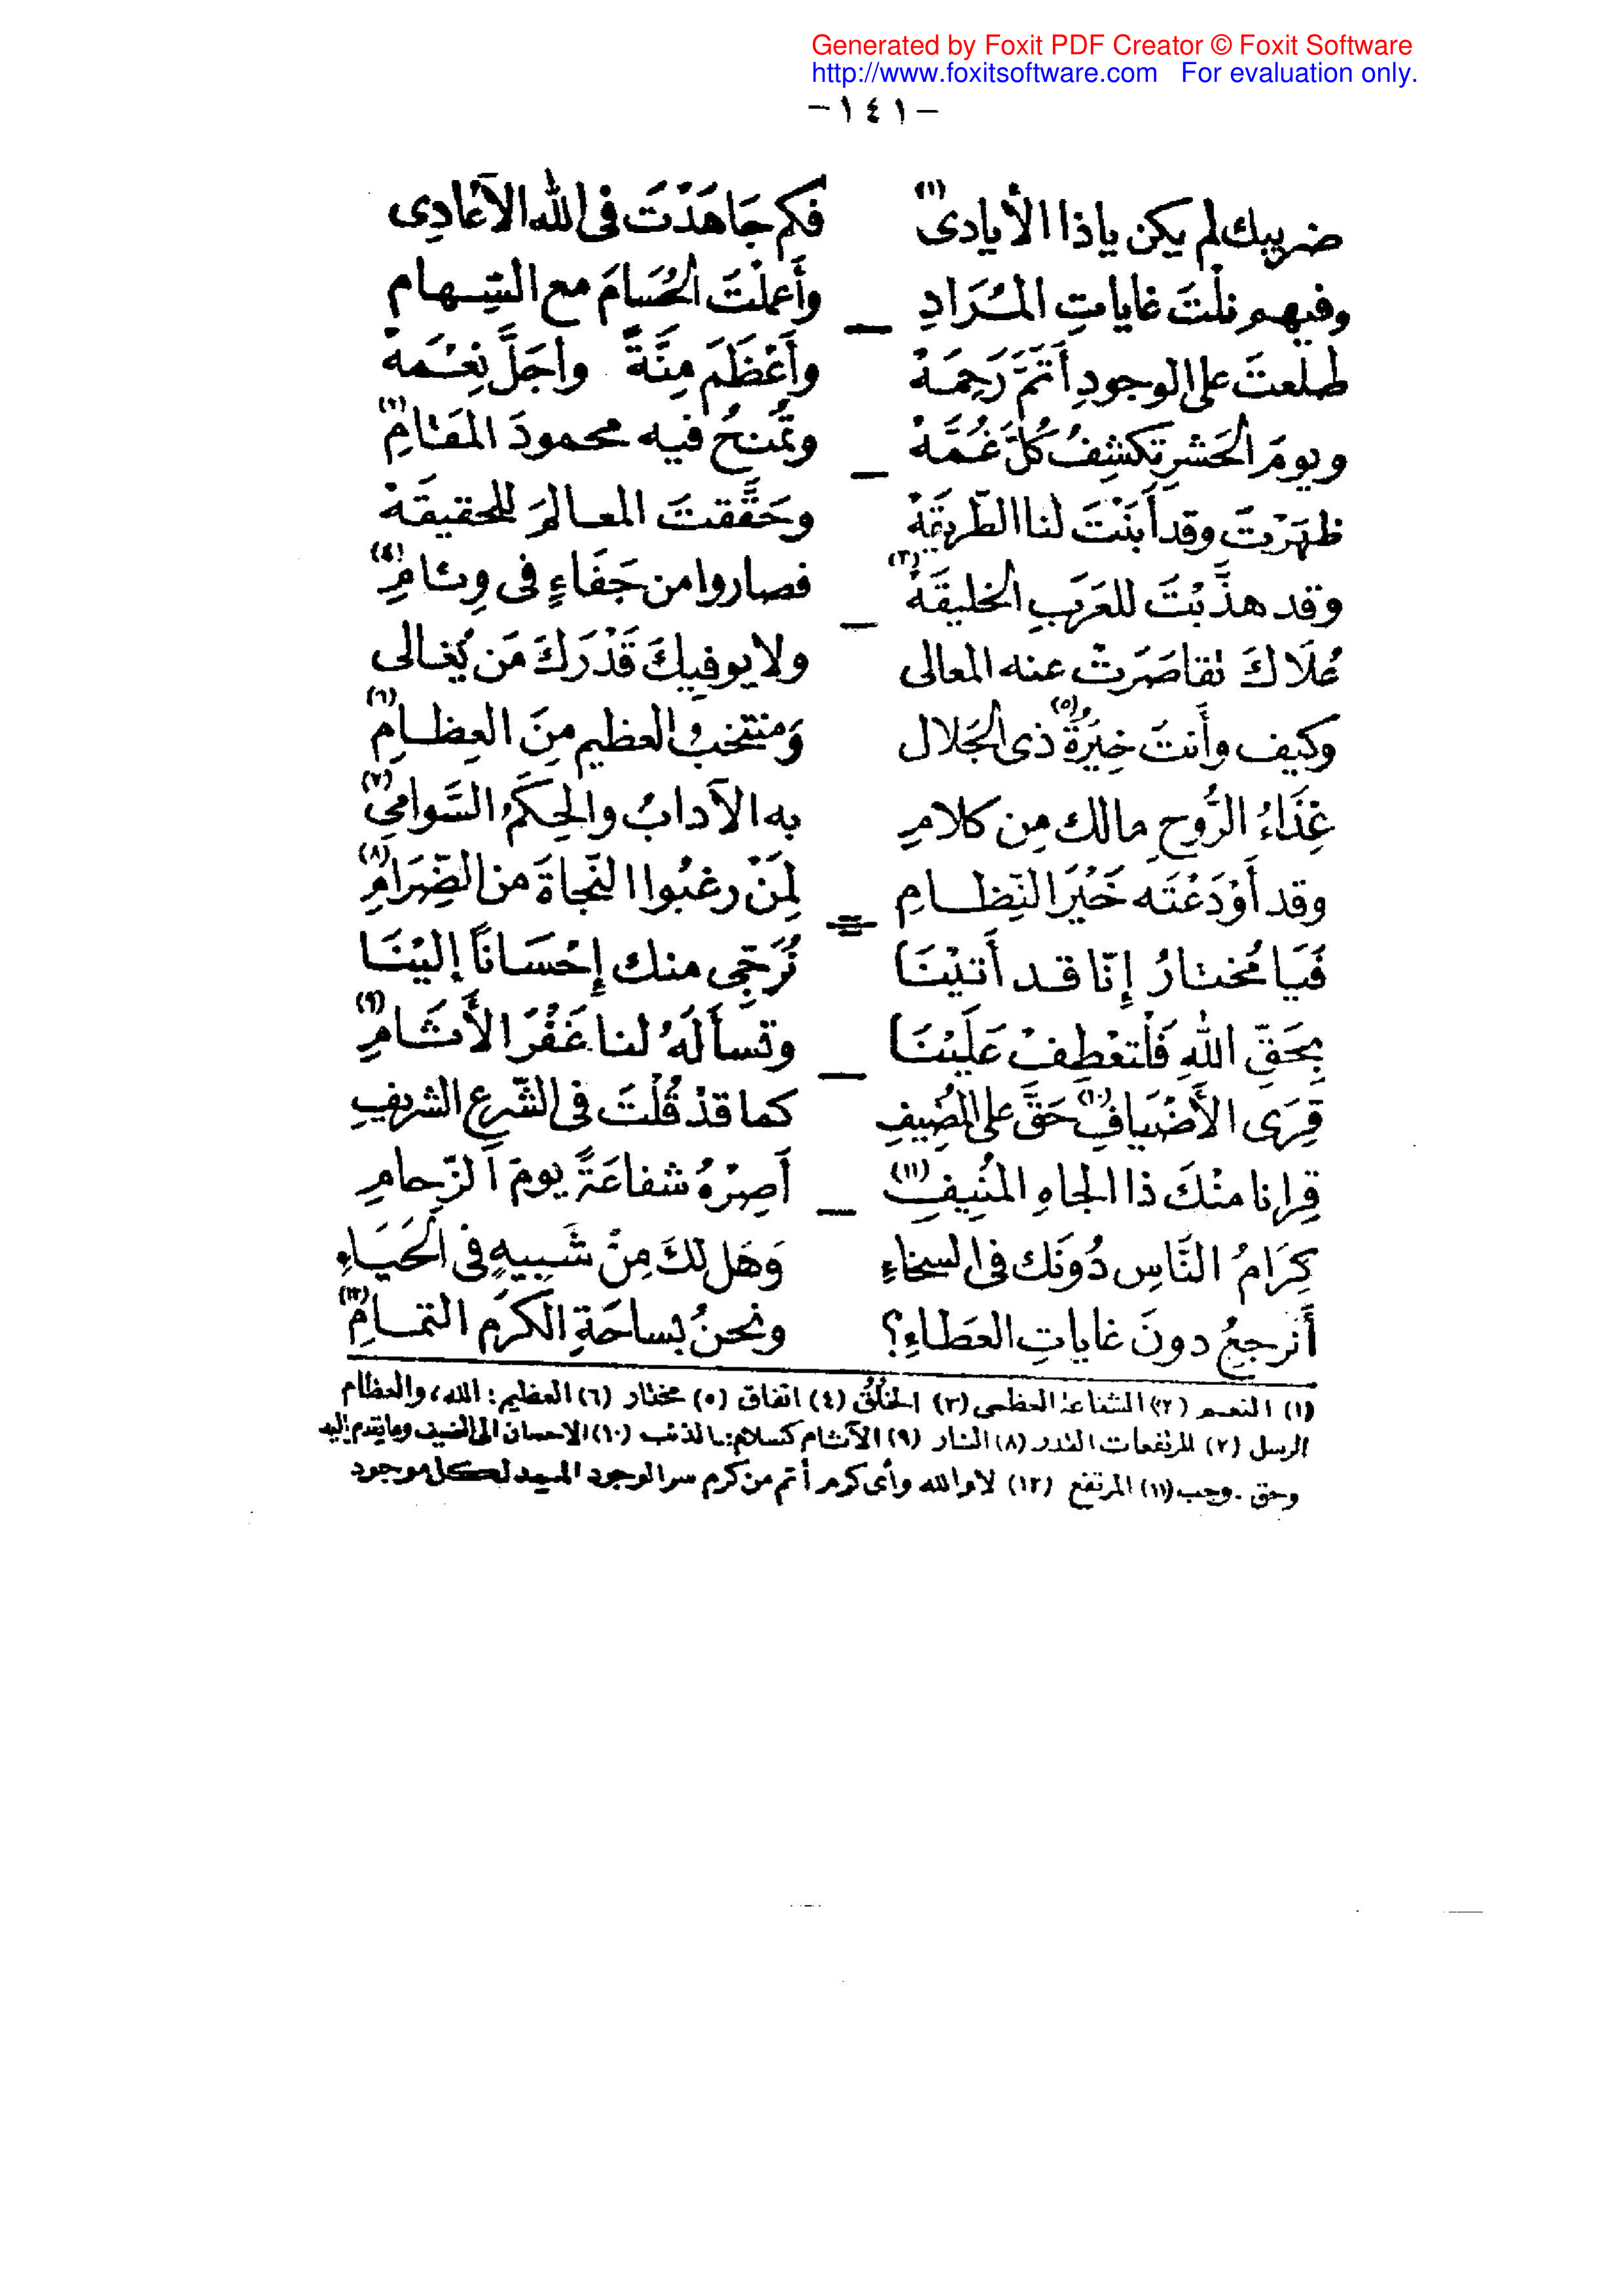 Generated by Foxit PDF Creator © Foxit Software
http://www.foxitsoftware.com For evaluation only.
-١٤١-
ضريبك لم يكن ياذا الأيادى (١) فكم جَاهَدْتَ فى الله الأعَادِى
وفيهم نلْتَ غاياتِ المُرَادِ _ وأَعملْتَ الحُسَامَ مع السِّهام
طلعتَ على الوجودِ أَتَمَّ رَحِمَهْ وأَعْظَمَ مِنَّةً وأجَلَّ نِعْمَهْ
ويومَ الحَشرِ تكشِفُ كُلَّ غُمَّهْ _ وتُمنحُ فيه محمودَ المَقَامِ (٢)
ظهَرْتَ وقد أَبَنْتَ لنا الطّريقَهْ وحَقَّقتَ المعالمَ للحقيقَهْ
وقد هذَّبْتَ للعَرَبِ الخليقَهْ (٣) _ فصاروا من جَفَاءٍ فى وِئامِ (٤)
عُلَاكَ تقاصَرَتْ عنه المعالى ولا يوفِيكَ قَدْرَكَ مَن يُغالى
وكيف وأَنتَ خِيَرَةُ (٥) ذى الجَلال وَمنتخبُ العظيم مِنَ العِظامِ (٦)
غِذَاءُ الرُّوحِ مالك مِن كلامِ به الآدابُ والحِكَمُ السَّوامى (٧)
وقد أَوْدَعْتَه خَيْرَ النِّظامِ = لِمَنْ رغبُوا النّجاةَ من الضِّرَامِ (٨)
فَيَا مُختارُ إِنّا قد أَتيْنَا نُرَجِّى منك إِحْسَاناً إليْنَا
بِحَقِّ اللهِ فَلْتعْطِفْ عَلَيْنَا _ وتسأَلَهُ لنا غَفْرَ الأَثَامِ (٩)
قِرَى الأَضْيَافِ (١٠) حَقَّ على المُضِيفِ كما قدْ قُلْتَ فى الشّرع الشريفِ
قِرانا منْكَ ذا الجاهِ المُنِيفِ (١١) _ أَصِرْهُ شفاعَةً يومَ الزِّحامِ
كِرَامُ النَّاسِ دُونَك فى السخاءِ وَهَل لكَ مِنْ شَبِيهٍ فى الحَيَاءِ
أَنرجعُ دونَ غاياتِ العطَاءِ؟ ونحنُ بساحَةِ الكَرَم التمامِ (١٢)
(١) النعم (٢) الشفاعة العظمى (٣) الخُلُقُ (٤) اتفاق (٥) مختار (٦) العظيم: الله، والعظام
الرسل (٧) المرتفعات القدر (٨) النار (٩) الآثام كسلام: الذنب (١٠) الاحسان الى الضيف وما يقدم إليه
وحق. وجب (١١) المرتفع (١٢) لا والله وأى كرم أتم من كرم سر الوجود الممد لكل موجود